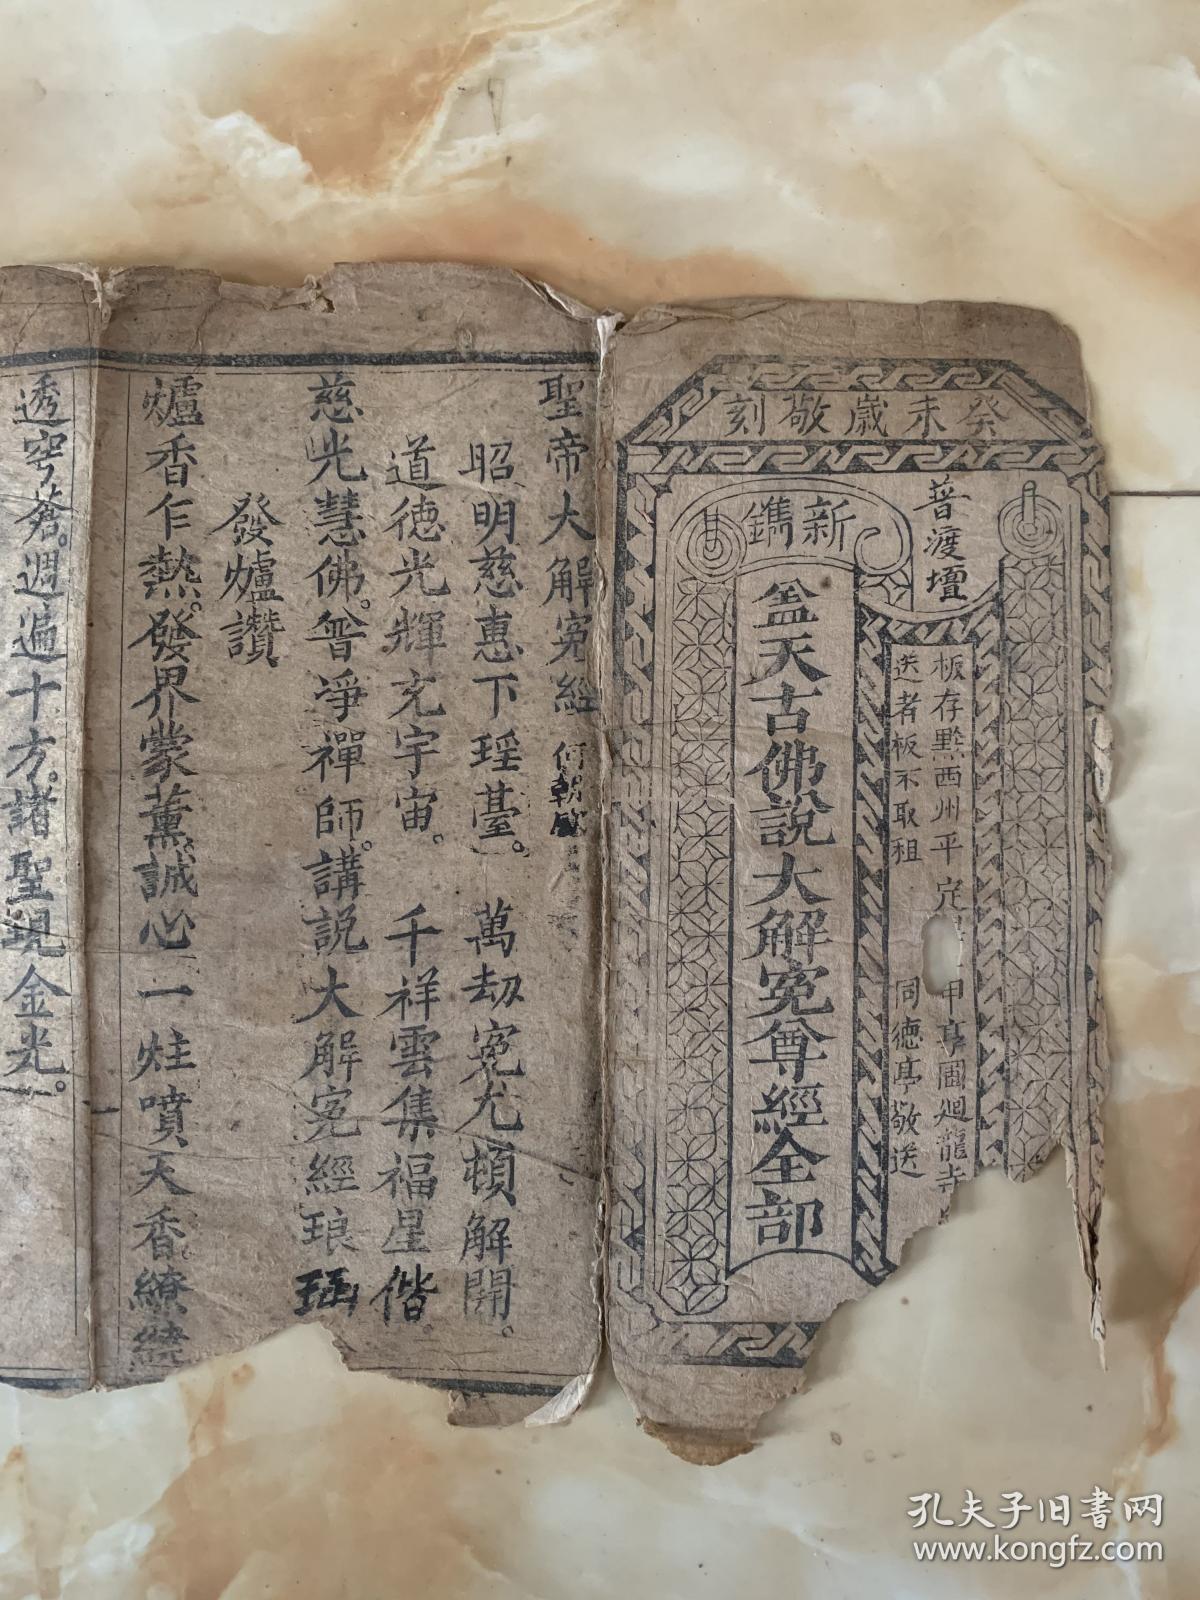 癸未歲敬刻
普渡壇
板存黔西州平定 甲亭圃迴龍寺
送者板不取租 同德亭敬送
新鐫
盖天古佛說大解寃尊經全部
聖帝大解寃經 何朝
昭明慈惠下瑶臺。萬劫寃尤頓解開。
道德光輝充宇宙。千祥雲集福星偕。
慈光慧佛。普淨禪師。講說大解寃經琅
發爐讚
爐香乍熱。發界蒙薰。誠心一炷噴天香繚繞
透穹蒼。週遍十方。諸聖現金光。
孔夫子旧书网
www.kongfz.com